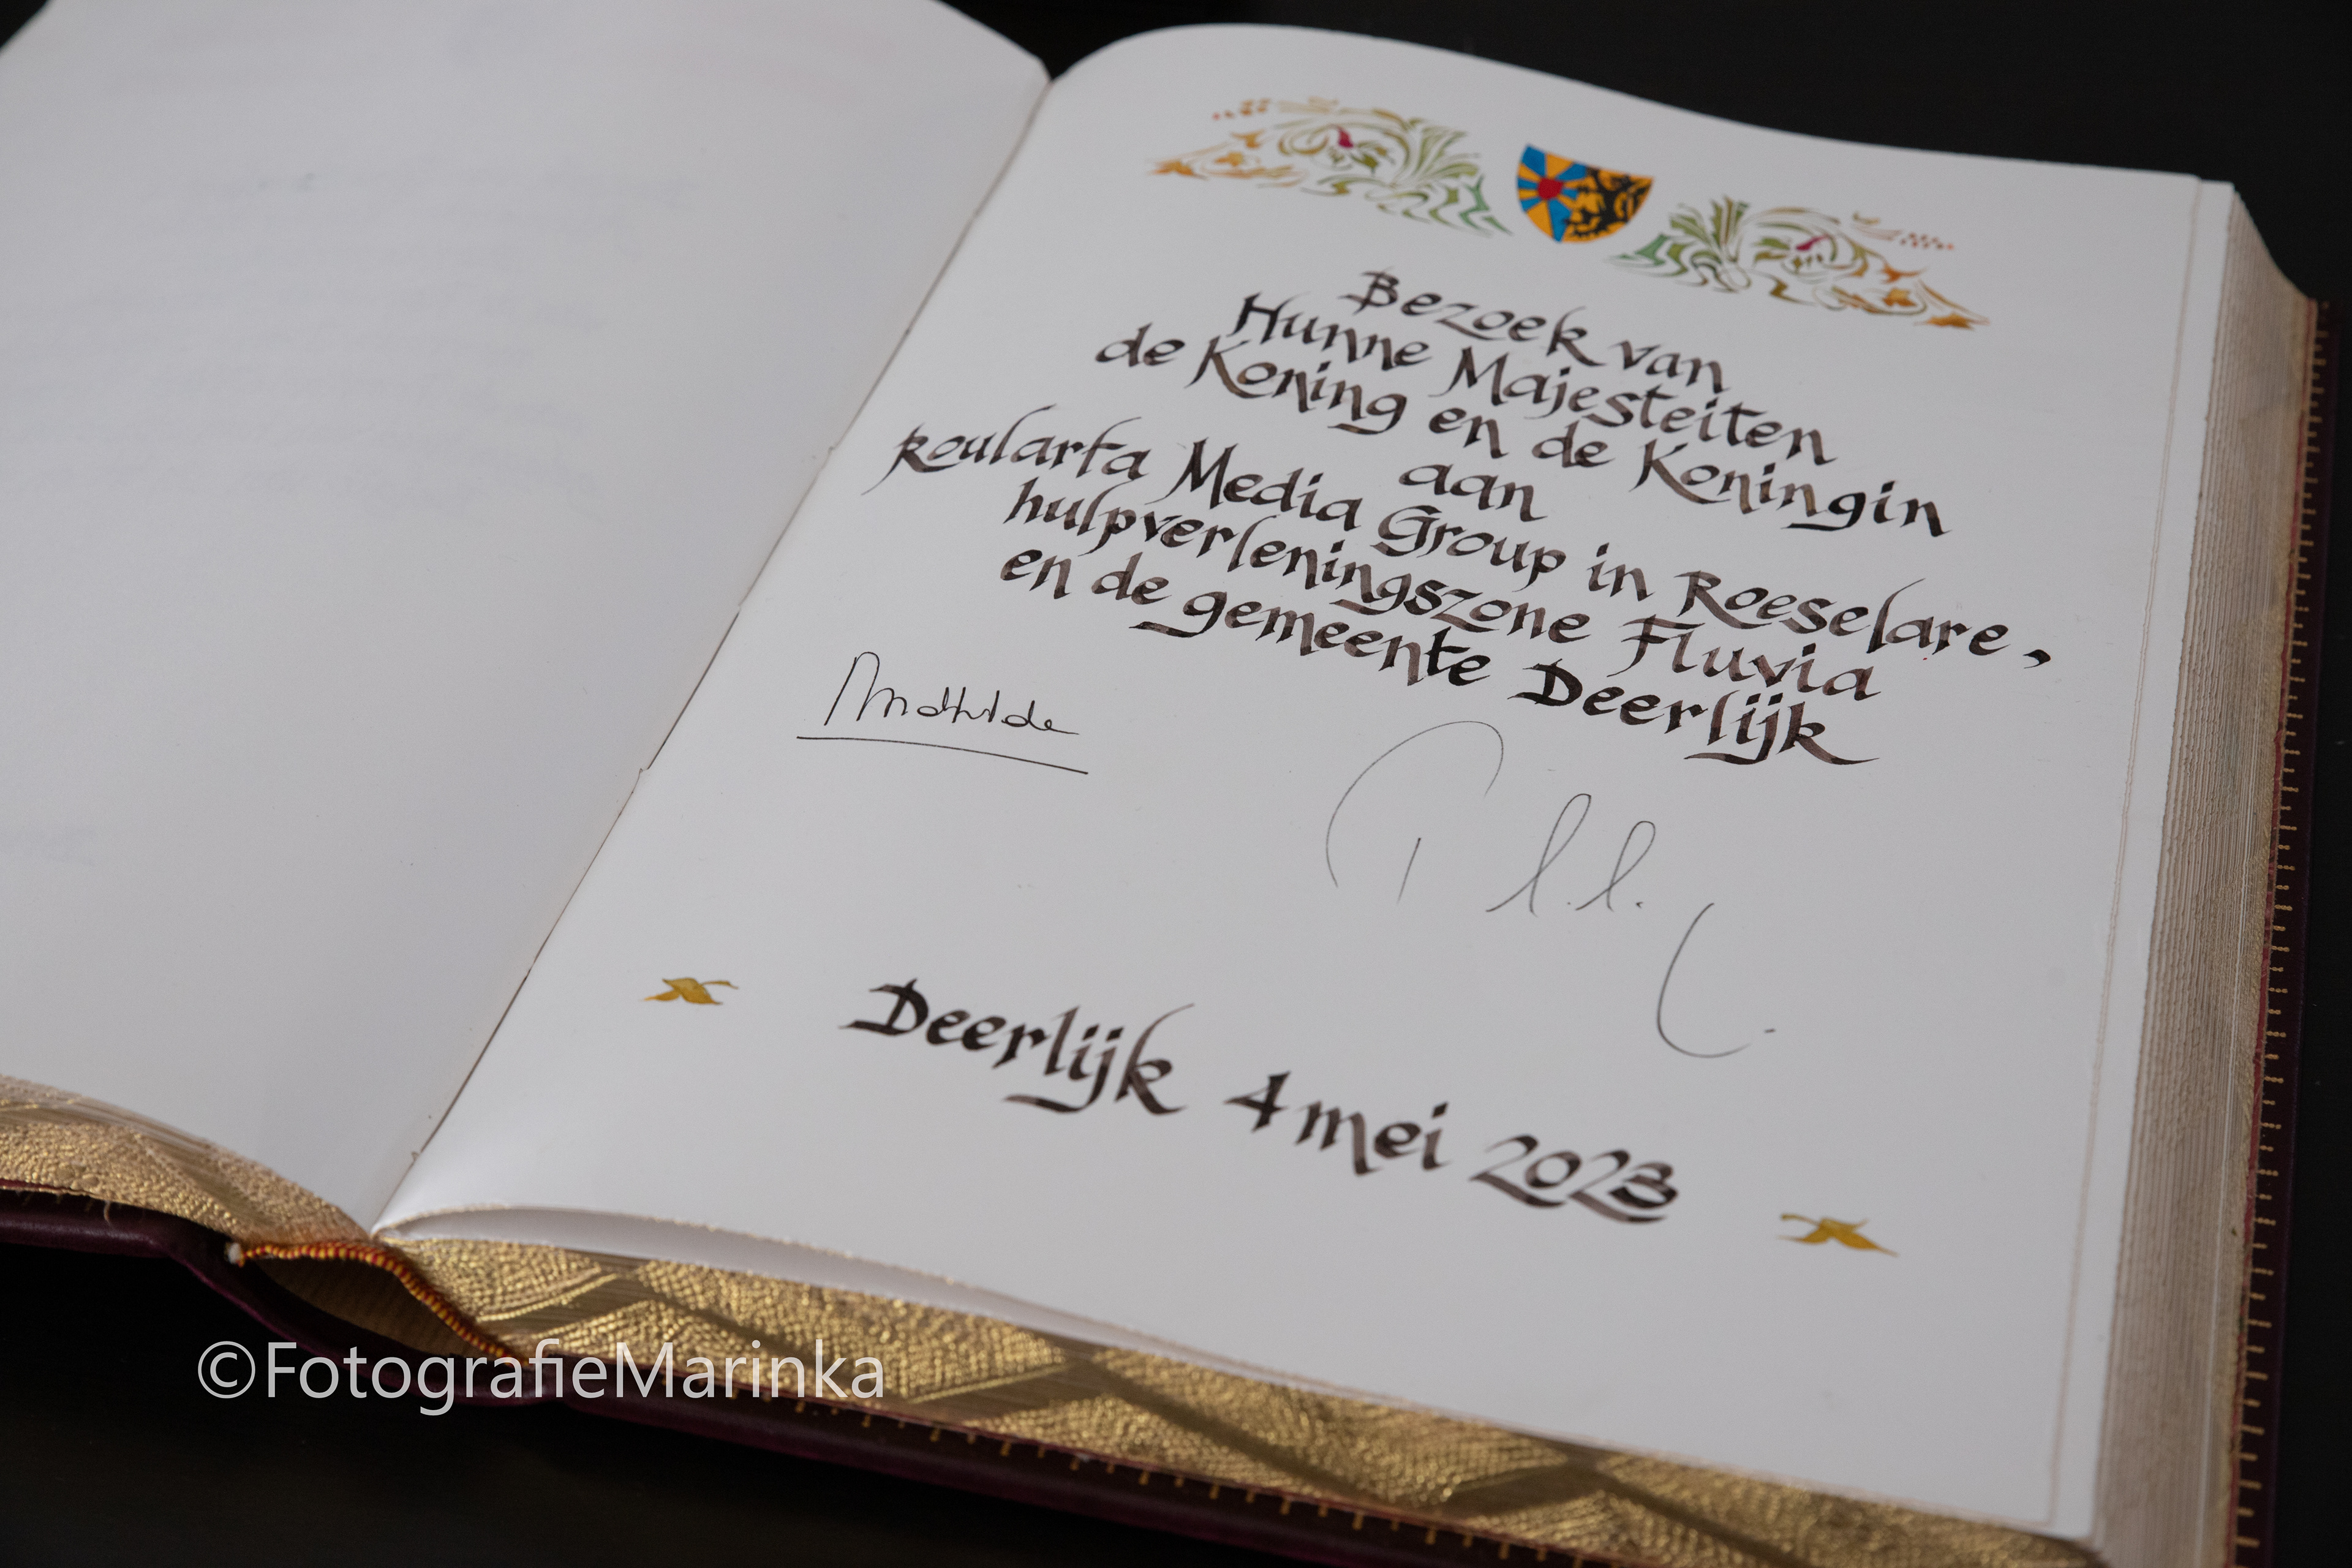 Bezoek van
Hunne Majesteiten
de Koning en de Koningin
aan
Roularta Media Group in Roeselare,
hulpverleningszone Fluvia
en de gemeente Deerlijk
Mathilde
Deerlijk 4 mei 2023
©FotografieMarinka